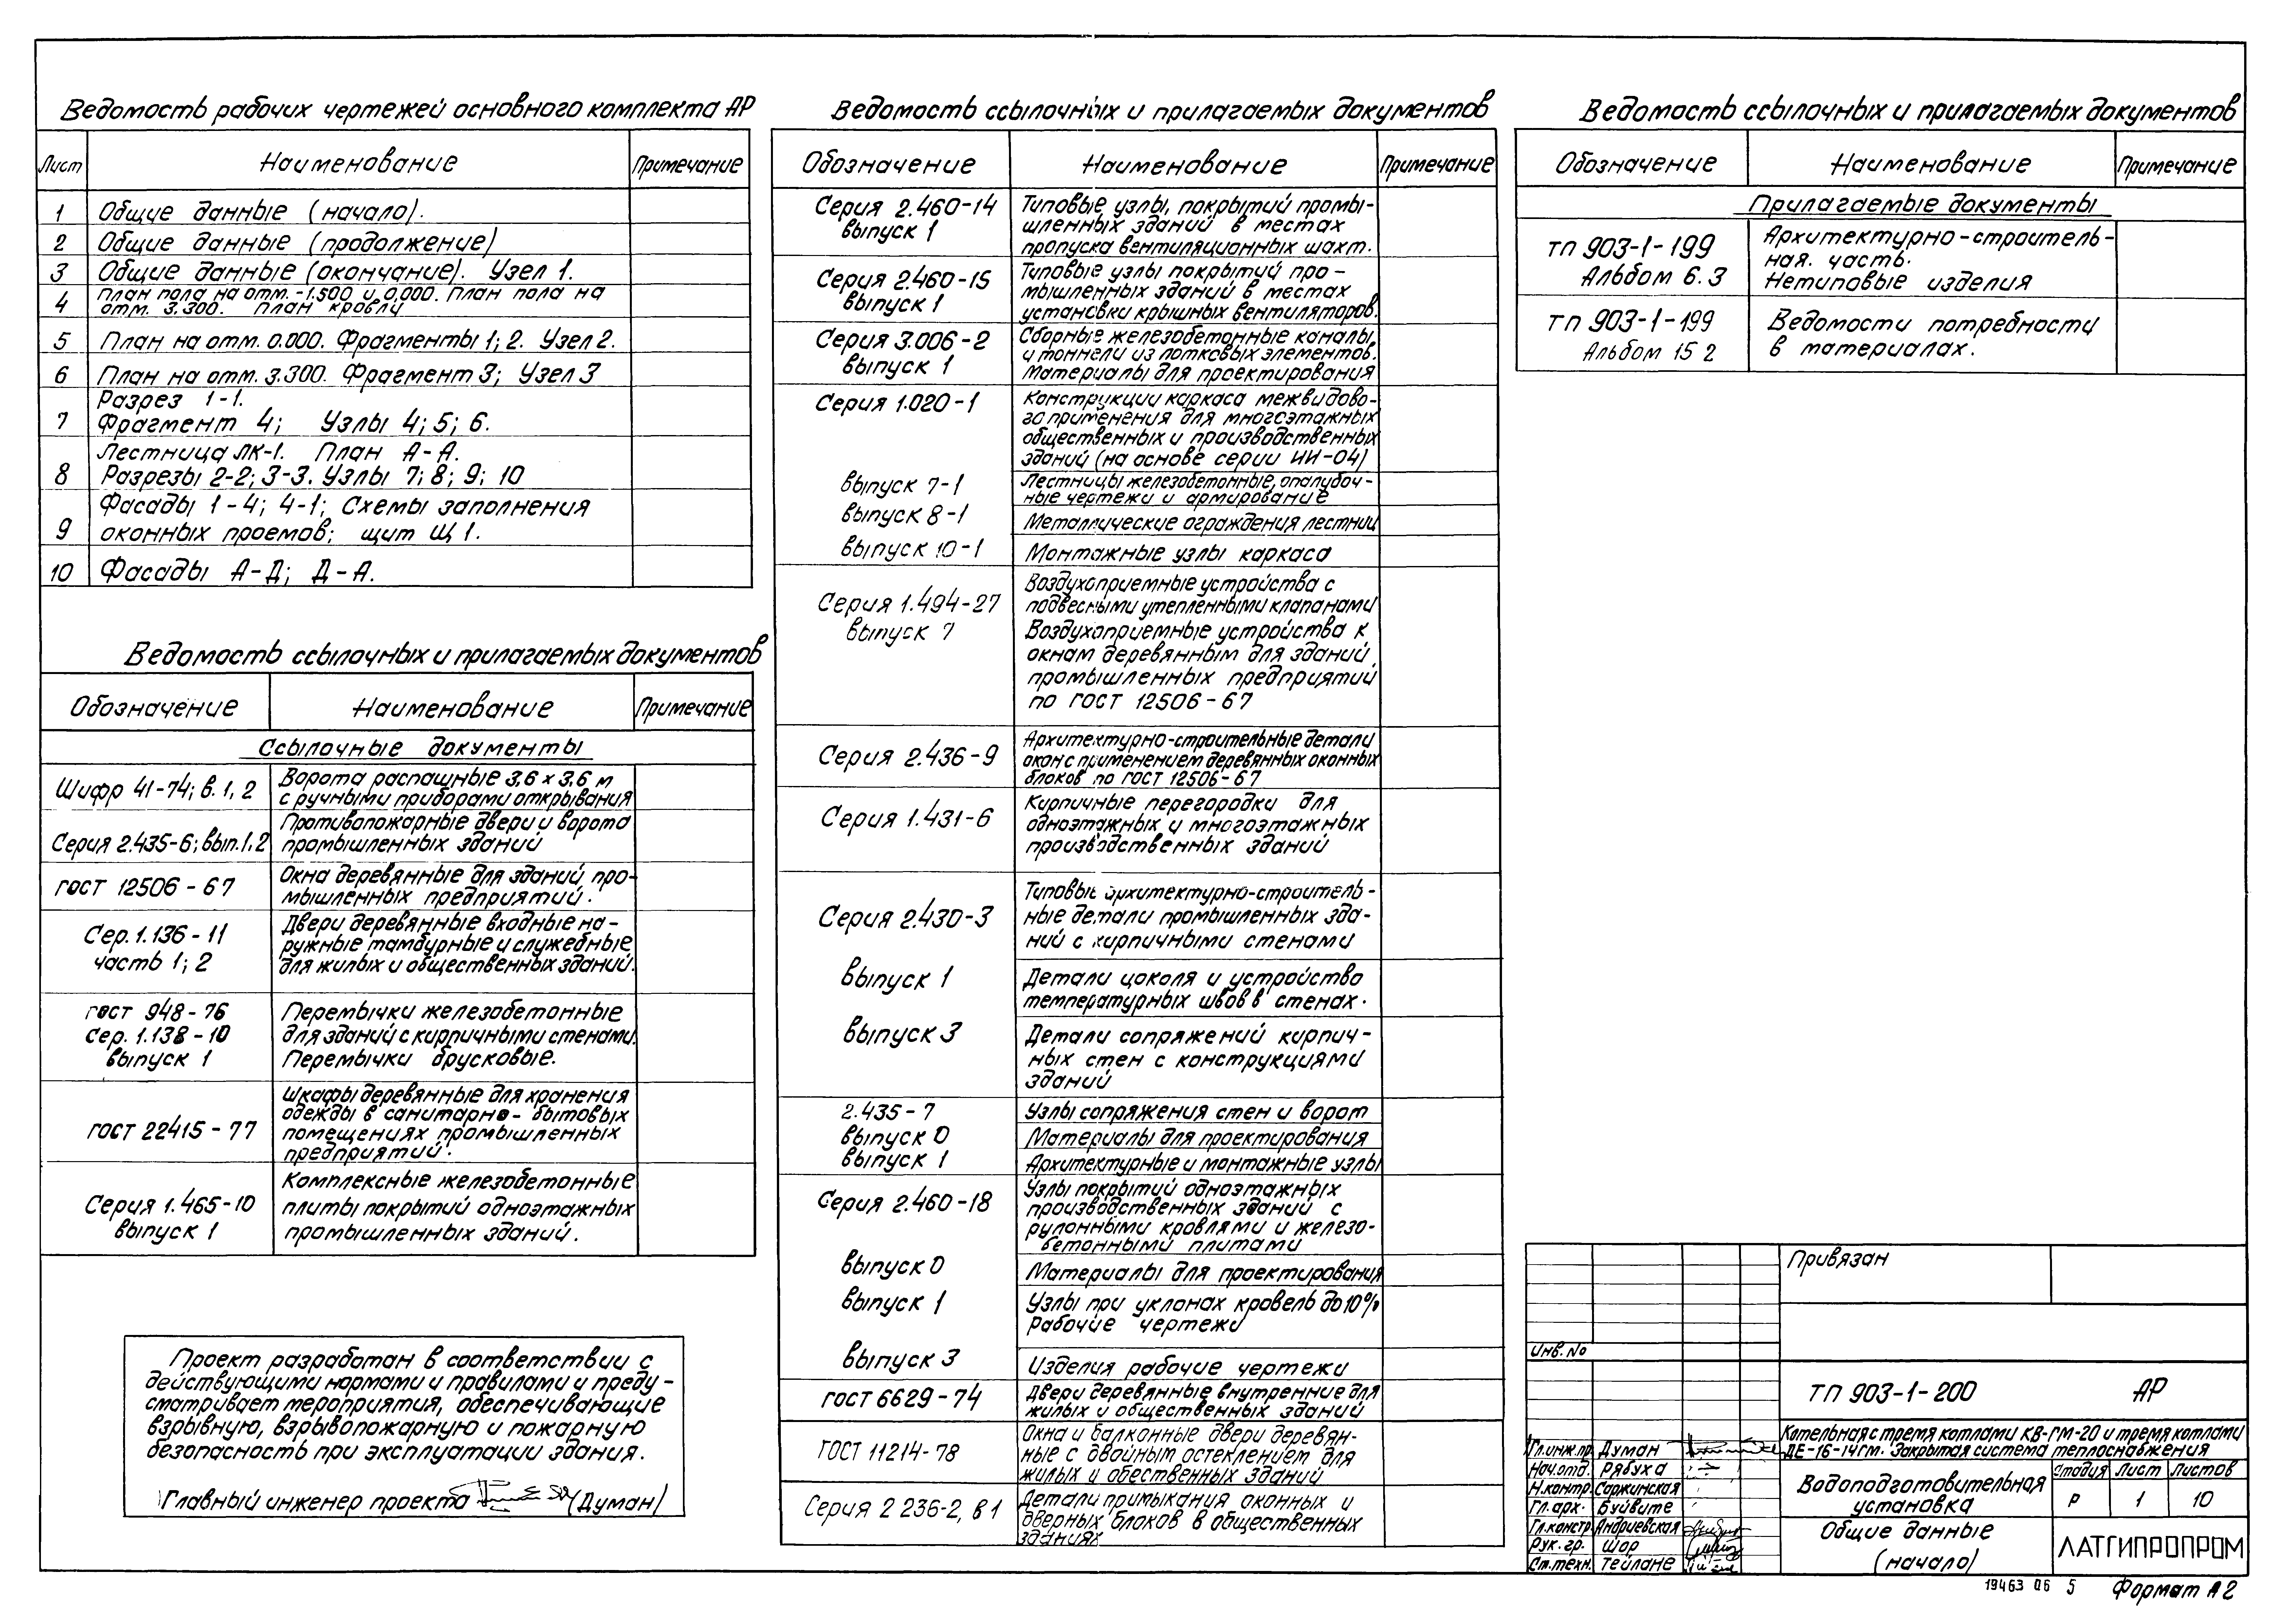 Ведомость рабочих чертежей основного комплекта АР
Лист Наименование Примечание
1 Общие данные (начало).
2 Общие данные (продолжение)
3 Общие данные (окончание). Узел 1.
4 План пола на отм. -1.500 и 0.000. План пола на
отм. 3.300. План кровли
5 План на отм. 0.000. Фрагменты 1; 2. Узел 2.
6 План на отм. 3.300. Фрагмент 3; Узел 3
7 Разрез 1-1.
Фрагмент 4; Узлы 4; 5; 6.
8 Лестница ЛК-1. План А-А.
Разрезы 2-2; 3-3. Узлы 7; 8; 9; 10
9 Фасады 1-4; 4-1; Схемы заполнения
оконных проемов; щит Щ1.
10 Фасады А-Д; Д-А.
Ведомость ссылочных и прилагаемых документов
Обозначение Наименование Примечание
Ссылочные документы
Шифр 41-74; в. 1, 2 Ворота распашные 3,6 х 3,6 м
с ручными приборами открывания
Серия 2.435-6; вып. 1, 2 Противопожарные двери и ворота
промышленных зданий
ГОСТ 12506-67 Окна деревянные для зданий про-
мышленных предприятий.
Сер. 1.136-11
часть 1; 2
Двери деревянные входные на-
ружные тамбурные и служебные
для жилых и общественных зданий.
ГОСТ 948-76
Сер. 1.138-10
выпуск 1
Перемычки железобетонные
для зданий с кирпичными стенами.
Перемычки брусковые.
ГОСТ 22415-77
Шкафы деревянные для хранения
одежды в санитарно-бытовых
помещениях промышленных
предприятий.
Серия 1.465-10
выпуск 1
Комплексные железобетонные
плиты покрытий одноэтажных
промышленных зданий.
Проект разработан в соответствии с
действующими нормами и правилами и преду-
сматривает мероприятия, обеспечивающие
взрывную, взрывопожарную и пожарную
безопасность при эксплуатации здания.
Главный инженер проекта (Думан)
Ведомость ссылочных и прилагаемых документов
Обозначение Наименование Примечание
Серия 2.460-14
выпуск 1
Типовые узлы, покрытий промы-
шленных зданий в местах
пропуска вентиляционных шахт.
Серия 2.460-15
выпуск 1
Типовые узлы покрытий про-
мышленных зданий в местах
установки крышных вентиляторов.
Серия 3.006-2
выпуск 1
Сборные железобетонные каналы
и тоннели из лотковых элементов.
Материалы для проектирования
Серия 1.020-1
Конструкции каркаса межвидово-
го применения для многоэтажных
общественных и производственных
зданий (на основе серии ИИ-04)
выпуск 7-1 Лестницы железобетонные, опалубоч-
ные чертежи и армирование
выпуск 8-1 Металлические ограждения лестниц
выпуск 10-1 Монтажные узлы каркаса
Серия 1.494-27
выпуск 7
Воздухоприемные устройства с
подвесными утепленными клапанами
Воздухоприемные устройства к
окнам деревянным для зданий
промышленных предприятий
по ГОСТ 12506-67
Серия 2.436-9
Архитектурно-строительные детали
окон с применением деревянных оконных
блоков по ГОСТ 12506-67
Серия 1.431-6
Кирпичные перегородки для
одноэтажных и многоэтажных
производственных зданий
Серия 2.430-3
Типовые архитектурно-строитель-
ные детали промышленных зда-
ний с кирпичными стенами
выпуск 1 Детали цоколя и устройство
температурных швов в стенах.
выпуск 3 Детали сопряжений кирпич-
ных стен с конструкциями
зданий
2.435-7 Узлы сопряжения стен и ворот
выпуск 0 Материалы для проектирования
выпуск 1 Архитектурные и монтажные узлы
Серия 2.460-18
Узлы покрытий одноэтажных
производственных зданий с
рулонными кровлями и железо-
бетонными плитами
выпуск 0 Материалы для проектирования
выпуск 1 Узлы при уклонах кровель до 10%
Рабочие чертежи
выпуск 3 Изделия рабочие чертежи
ГОСТ 6629-74 Двери деревянные внутренние для
жилых и общественных зданий
ГОСТ 11214-78
Окна и балконные двери деревян-
ные с двойным остеклением для
жилых и обественных зданий
Серия 2 236-2, в 1
Детали примыкания оконных и
дверных блоков в общественных
зданиях
Ведомость ссылочных и прилагаемых документов
Обозначение Наименование Примечание
Прилагаемые документы
ТП 903-1-199
Альбом 6.3
Архитектурно-строитель-
ная. часть.
Нетиповые изделия
ТП 903-1-199
Альбом 15 2
Ведомости потребности
в материалах.
Привязан
Инв. №
ТП 903-1-200 АР
Котельная с тремя котлами КВ-ГМ-20 и тремя котлами
ДЕ-16-14ГМ. Закрытая система теплоснабжения
Гл.инж.пр. Думан
Нач.отд. Рябуха
Н.контр. Саржинская
Гл.арх. Буйвите
Гл.констр. Андриевская
Рук. гр. Шор
Ст.техн. Тейлане
Водоподготовительная
установка
Стадия Лист Листов
Р 1 10
Общие данные
(начало)
ЛАТГИПРОПРОМ
19463 06 5 Формат А2